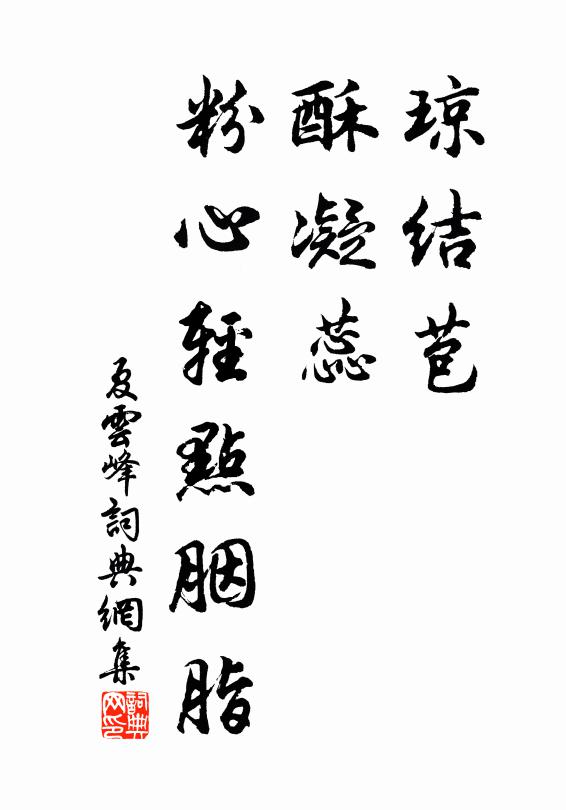 琼结苞
酥凝蕊
粉心輕點胭脂
夏雲峰詞典網集
詞典網印